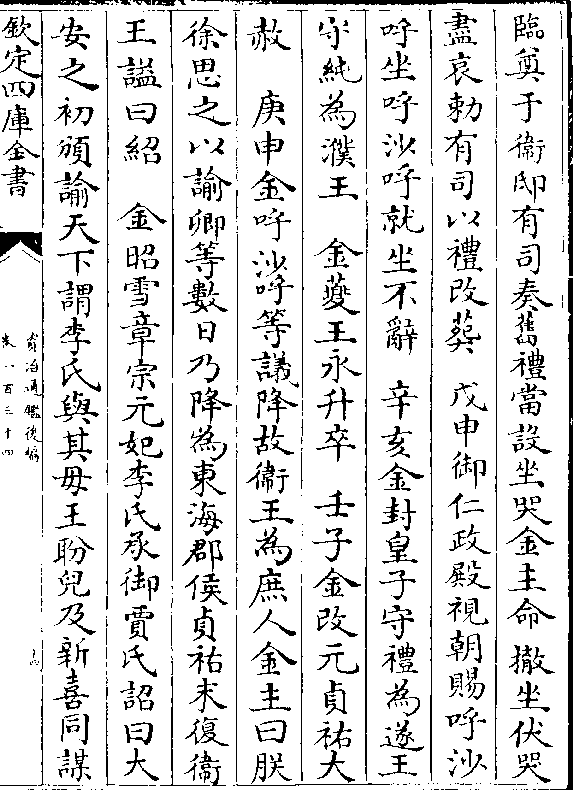 臨奠于衞邸有司奏舊禮當設坐哭金主命撤坐伏哭
盡哀勅有司以禮改葬　戊申御仁政殿視朝賜呼沙
呼坐呼沙呼就坐不辭　辛亥金封皇子守禮為遂王
守純為濮王　金夔王永升卒　壬子金改元貞祐大
赦　庚申金呼沙呼等議降故衞王為庶人金主曰朕
徐思之以諭卿等數日乃降為東海郡侯貞祐末復衞
王諡曰紹　金昭雪章宗元妃李氏承御賈氏詔曰大
安之初頒諭天下謂李氏與其母王盼兒及新喜同謀
欽定四庫全書
資治通鑑後編
卷一百三十四